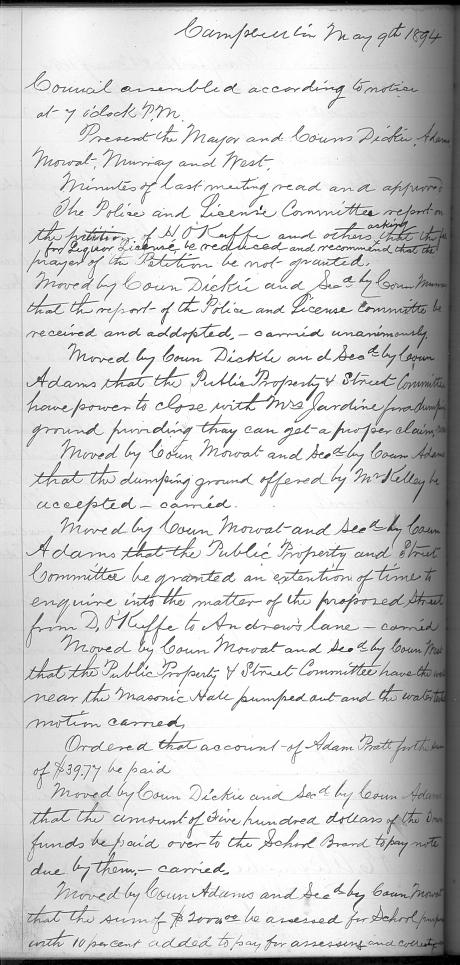 Campbellton May 9th 1894
Council assembled according to notice
at 7 o'clock P.M.
Present the Mayor and Couns Dickie, Adams
Mowat, Murray and West.
Minutes of last meeting read and approved
The Police and License Committee report on
the petition of H O'Keffe and others asking that the fee
for Liquor License, be reduced and recommend that the
prayer of the Petition be not granted.
Moved by Coun Dickie and Secd by Coun Murray
that the report of the Police and License Committee be
received and addopted, - carried unanimously.
Moved by Coun Dickie and Secd by Coun
Adams that the Public Property & Street Committee
have power to close with Mrs Jardine for a dumping
ground providing thay can get a proper claim,
Moved by Coun Mowat and Secd by Coun Adams
that the dumping ground offered by Mr Kelley be
accepted - carried.
Moved by Coun Mowat and Secd by Coun
Adams that the Public Property and Street
Committee be granted an extention of time to
enquire into the matter of the proposed Street
from D. O'Keffe to Andrew's lane - carried
Moved by Coun Mowat and Secd by Coun
that the Public Property & Street Committee have the
near the Masonic Hall pumped out and the water
motion carried,
Ordered that account of Adam Pratt for the sum
of $39.77 be paid
Moved by Coun Dickie and Secd by Coun Adams
that the amount of Five hundred dollars of the
funds be paid over to the School Board to pay note
due by them, - carried,
Moved by Coun Adams and Secd by Coun Mowat
that the sum of $2000.00 be assessed for School purposes
with 10 per cent added to pay for assessing and collecting